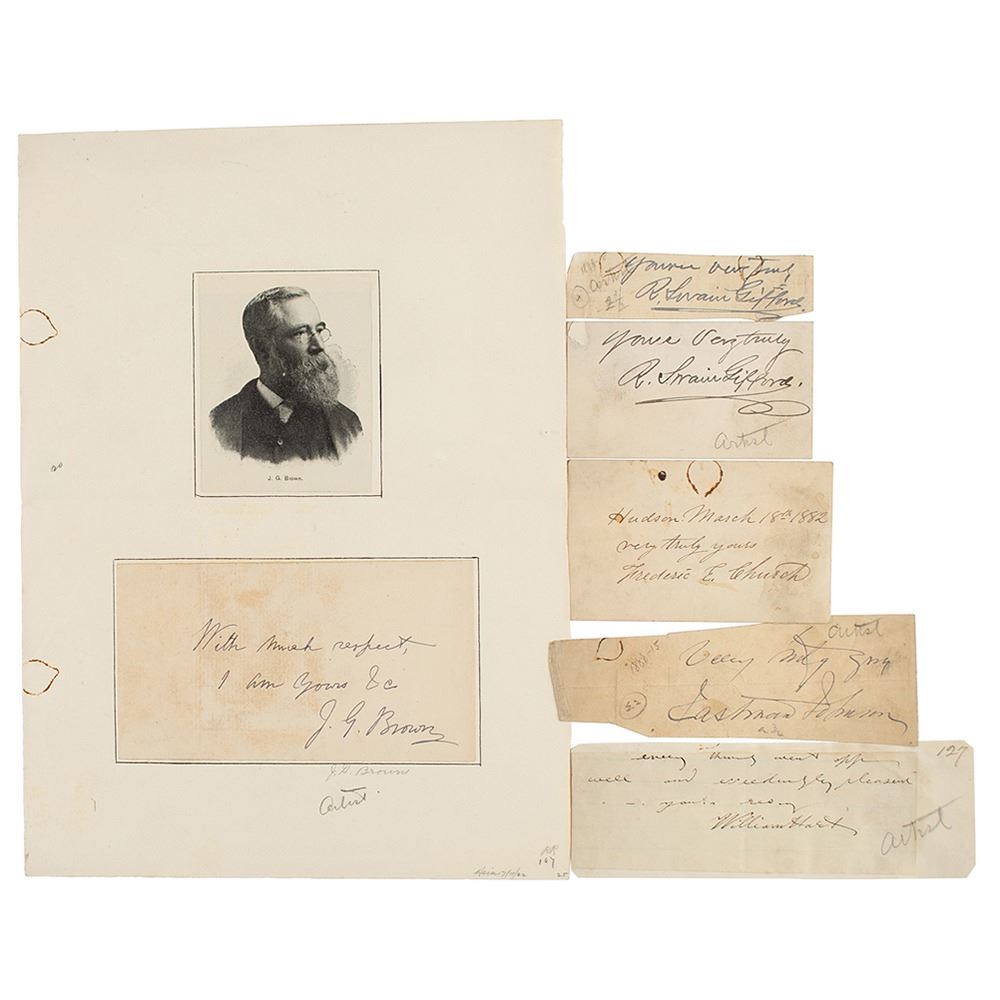 J. G. Brown.
With much respect,
I am Yours &c
J. G. Brown
J. G. Brown
Artist.
RR
167
25
Yours very truly
R. Swain Gifford.
Yours Very truly
R. Swain Gifford.
Artist
Hudson. March 18th 1882
very truly yours
Frederic E. Church
Artist
Very
Eastman Johnson
52
127
every thing went off
well and exceedingly pleasant
yours
William Hart
Artist